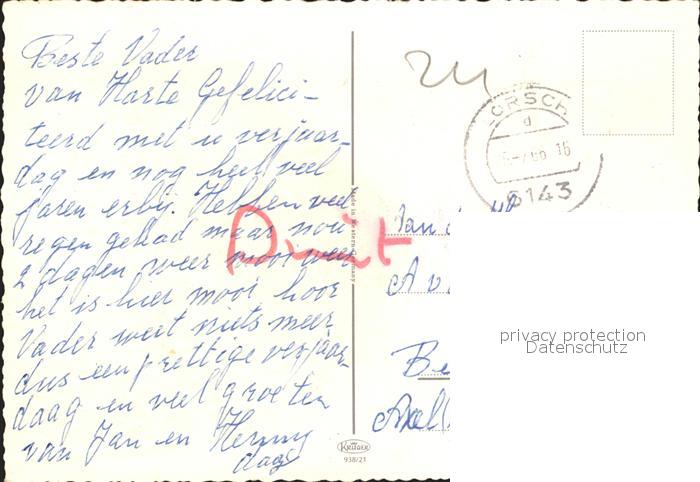 Beste Vader
van Harte Gefelici-
teerd met u verjaar-
dag en nog heel veel
jaren erbij. Hebben veel
regen gehad maar nou
2 dagen weer mooi weer
het is hier mooi hoor
Vader weet niets meer
dus een prettige verjaar-
daag en veel groeten
van Jan en Henny
daag
Made in Western Germany
KRÜGER
938/21
LORSCH
d
6143
Duit
Jan
Av
Be
privacy protection
Datenschutz